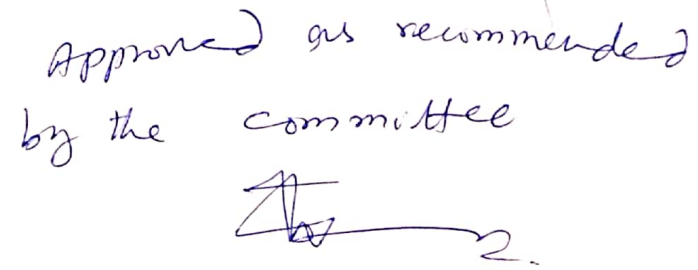 Approved as recommended
by the committee